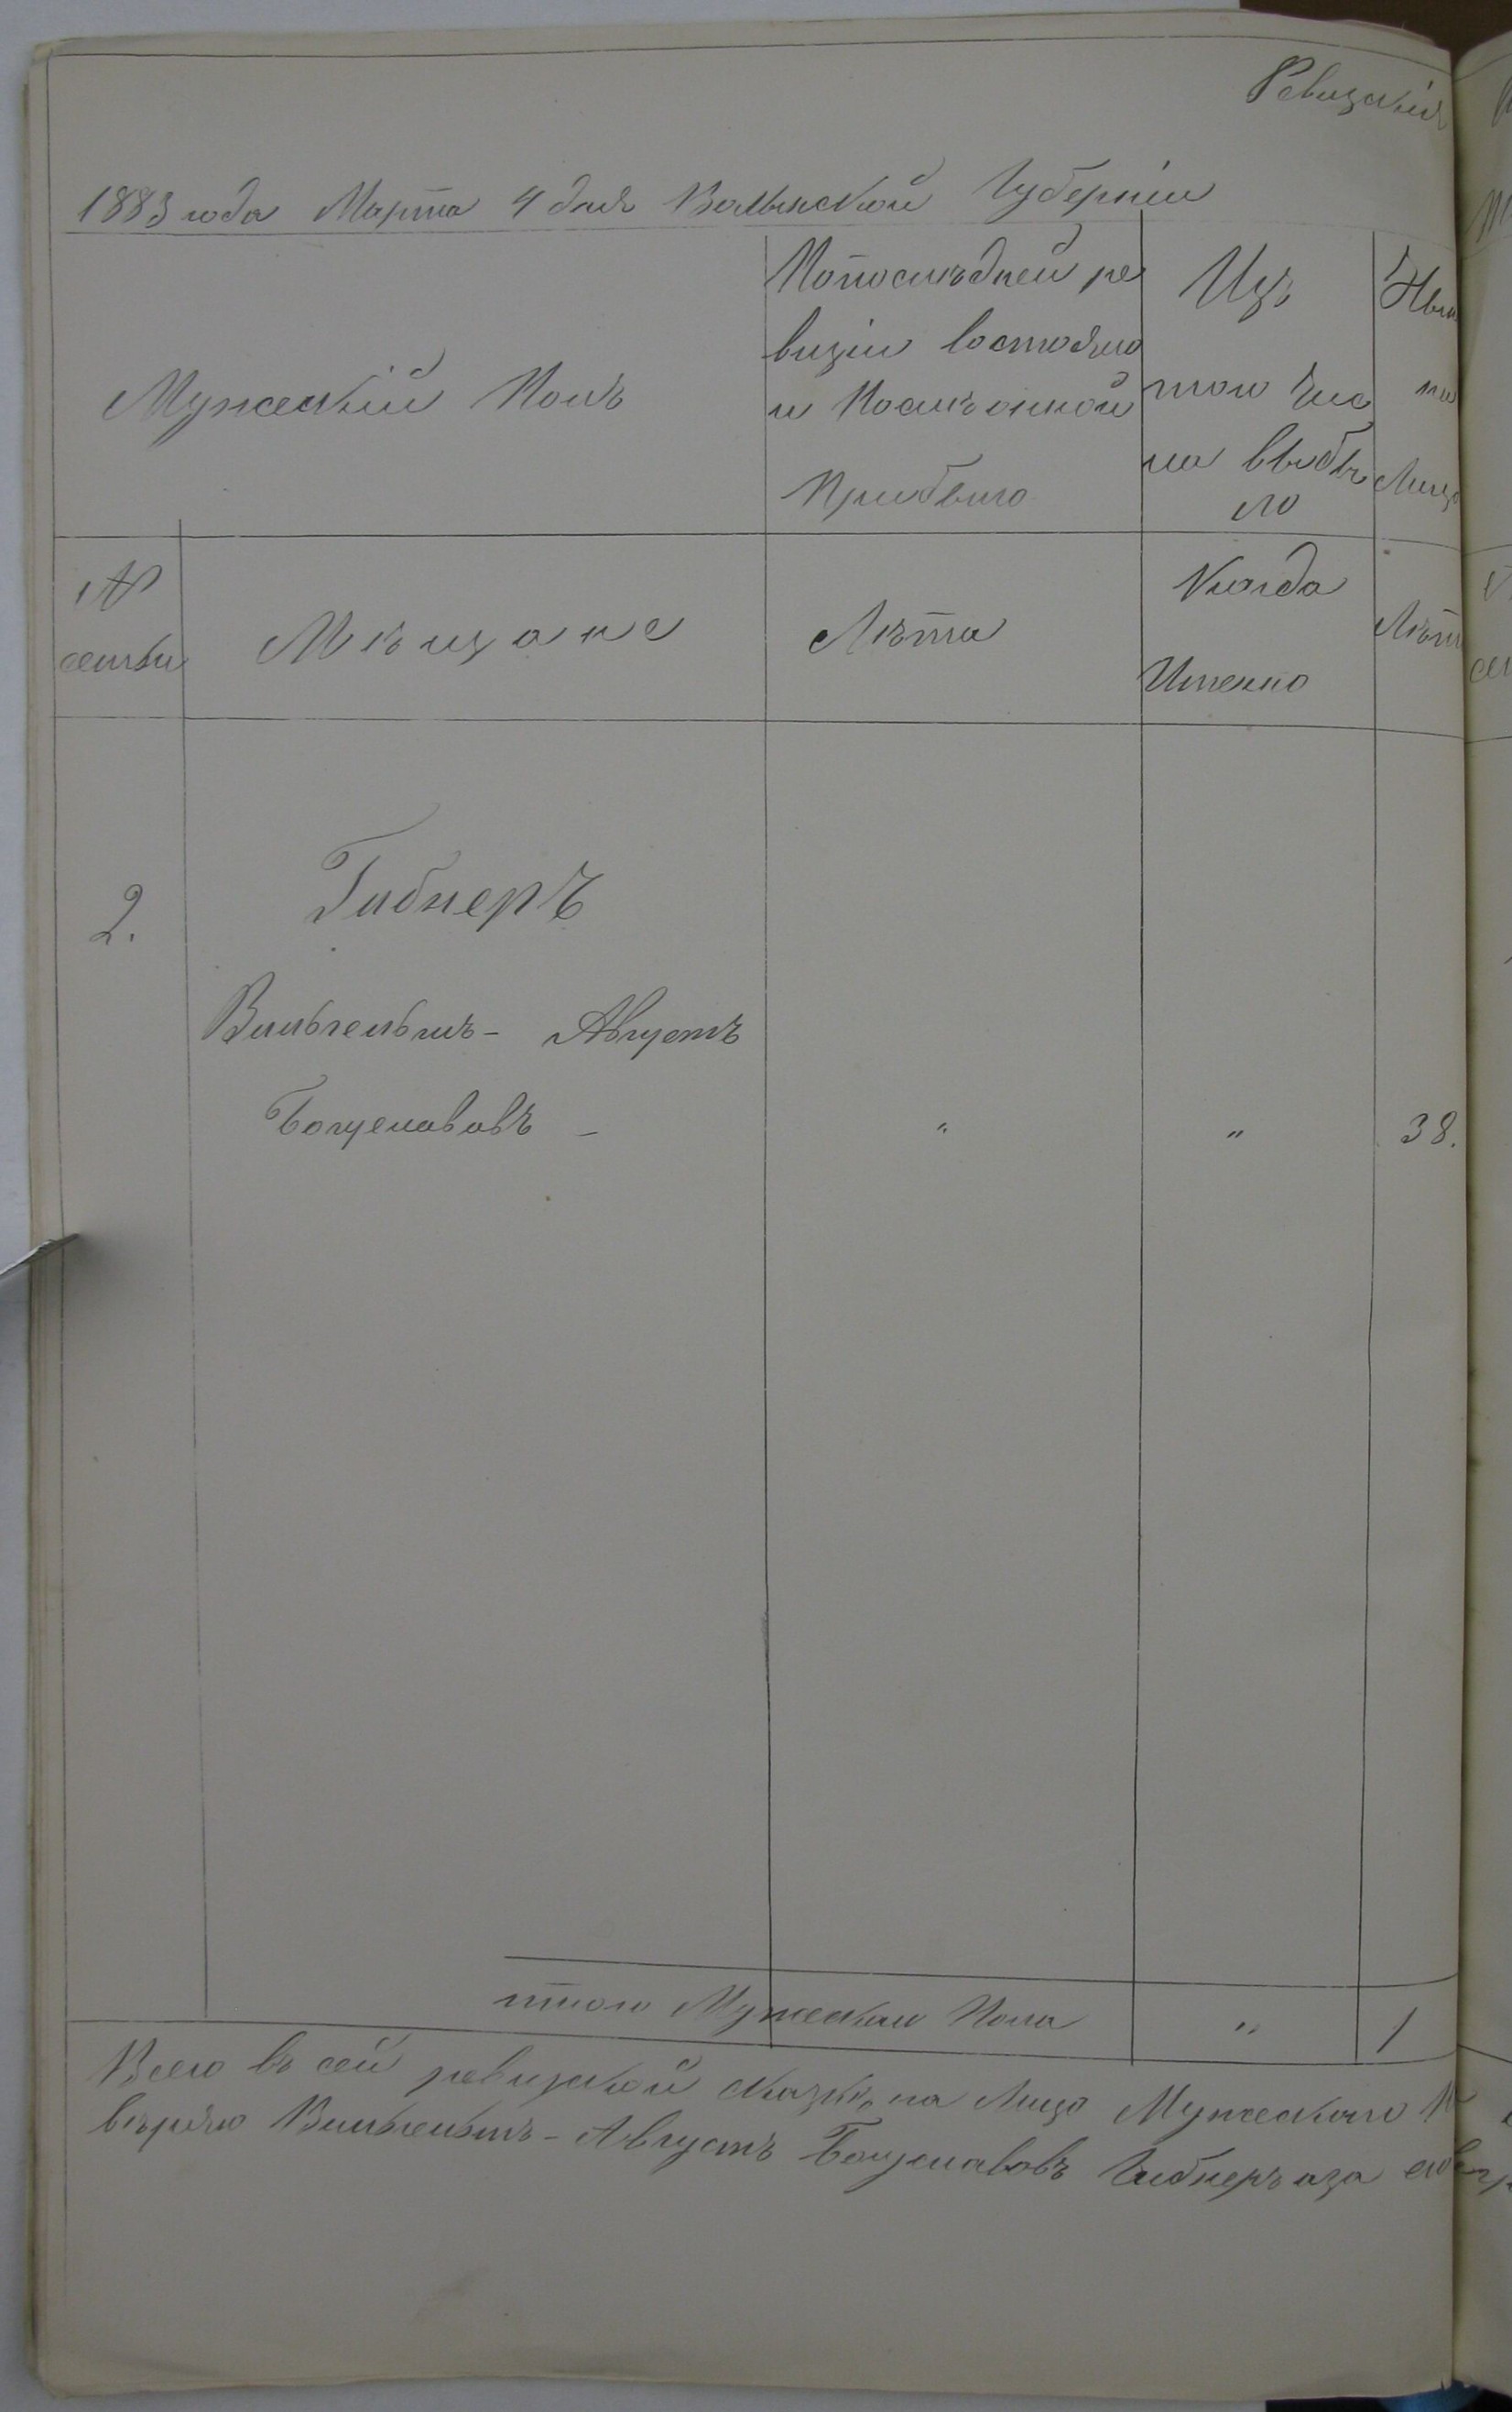 Ревизскія
1883 года Марта 4 дня Волынской Губерніи
Мужескій Полъ
Попослѣдней ре
визіи состояло
и Послѣ онной
Прибыло
Изъ
того Чис
ла выбы
ло
Лицо
№
семьи
Мѣщане
Лѣта
Когда
Именно
Лѣт
2.
Гибнеръ
Вильгельмъ - Августъ
Богуславовъ - " " 38.
итого Мужеска Пола " 1
Всего въ сей ревизской сказкѣ на Лицо Мужескаго П
вѣряю Вильгельмъ - Августъ Богуславовъ Гибнеръ аза его